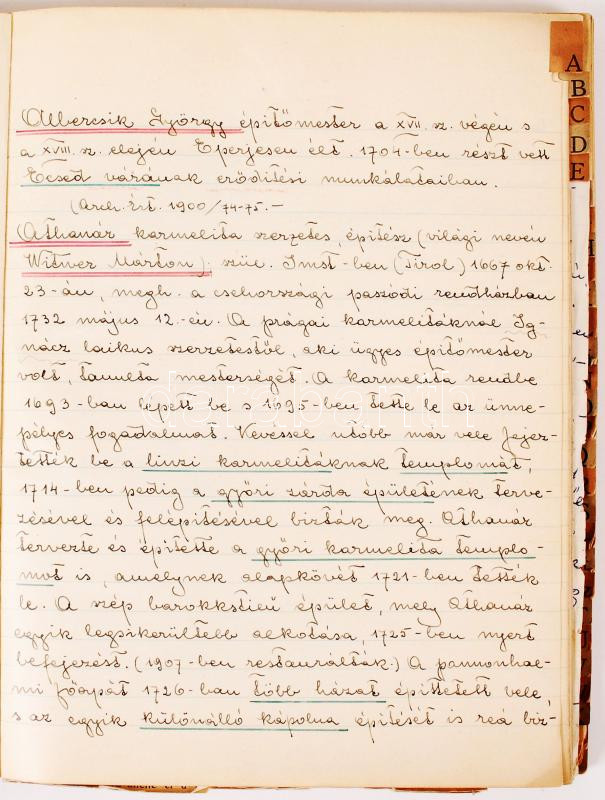 A
B
C
D
E
Albercsik György építőmester a XVII. sz. végén s
a XVIII. sz. elején Eperjesen élt. 1704-ben részt vett
Ecsed várának erődítési munkálataiban.
(Arch. Ért. 1900/74-75.-
Athanáz karmelita szerzetes, építész (világi nevén
Witwer Márton); szül. Imst-ben (Tirol) 1667 okt.
23-án, megh. a csehországi paszódi rendházban
1732 május 12.-én. A prágai karmelitáknál Ig-
nácz laikus szerzetestől, aki ügyes építőmester
volt, tanulta mesterségét. A karmelita rendbe
1693-ban lépett be s 1695-ben tette le az ünne-
pélyes fogadalmat. Kevéssel utóbb már vele fejez-
tették be a linzi karmelitáknak templomát,
1714-ben pedig a győri zárda épületének terve-
zésével és felépítésével bízták meg. Athanáz
tervezte és építette a győri karmelita templo-
mot is, amelynek alapkövét 1721-ben tették
le. A szép barokkstílű épület, mely Athanáz
egyik legsikerültebb alkotása, 1725-ben nyert
befejezést. (1907-ben restaurálták.) A pannonhal-
mi főapát 1726-ban több házat építtetett vele
s az egyik különálló kápolna építését is reá bíz-